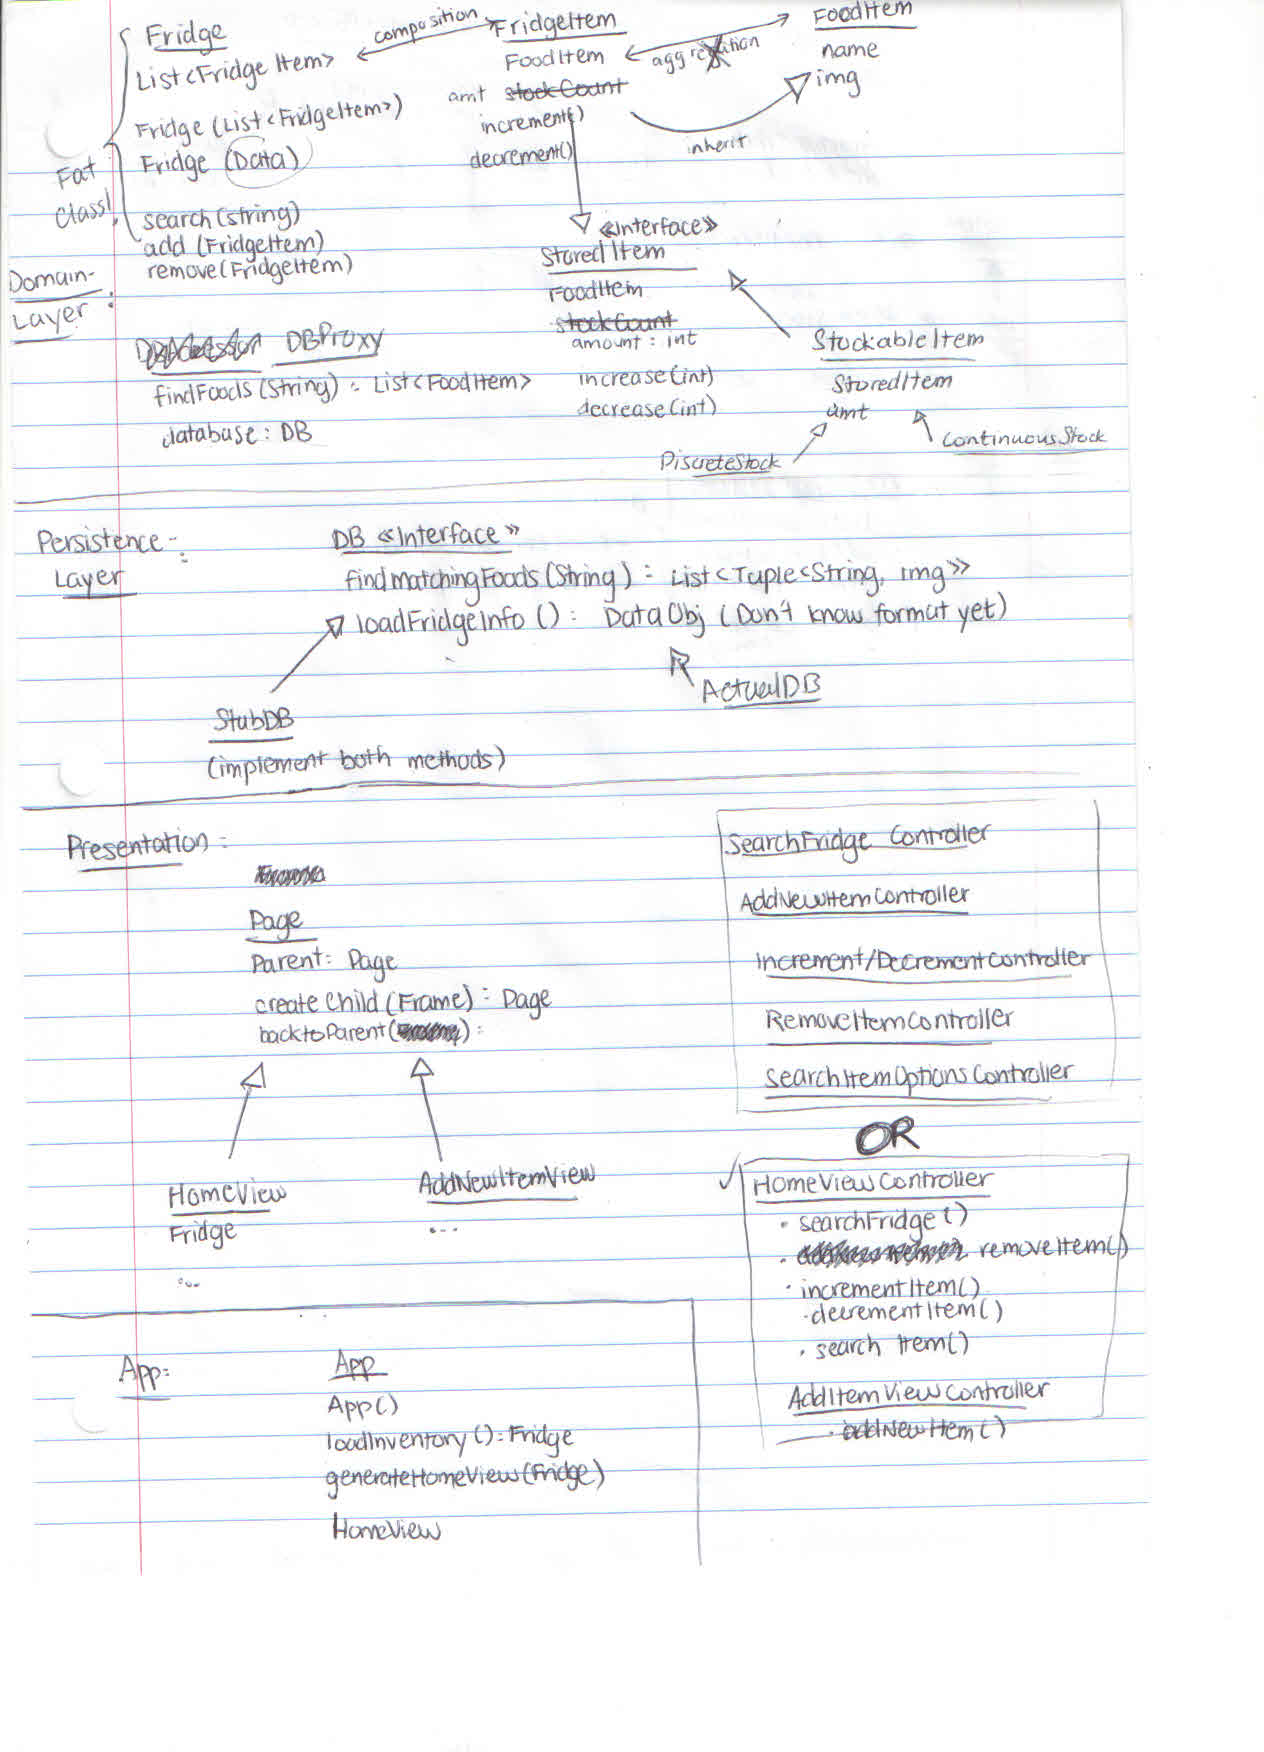 Fridge
List<Fridge Item>
Fridge (List<FridgeItem>)
Fridge (Data)
search(string)
add (FridgeItem)
remove(FridgeItem)
Fat
Class!
composition
FridgeItem
FoodItem
amt stockCount
increment()
decrement()
aggregation
inherit
FoodItem
name
img
Domain-
Layer :
«Interface»
StoredItem
FoodItem
stockCount
amount : int
increase(int)
decrease(int)
StockableItem
StoredItem
amt
DiscreteStock
ContinuousStock
DBProxy
findFoods(String) : List<FoodItem>
database : DB
Persistence- :
Layer
DB «Interface»
findMatchingFoods(String) : List<Tuple<String, img>>
loadFridgeInfo () : DataObj (Don't know format yet)
StubDB
(implement both methods)
ActualDB
Presentation :
Page
Parent: Page
createChild (Frame) : Page
backtoParent( ) :
HomeView
Fridge
...
AddNewItemView
...
SearchFridge Controller
AddNewItemController
Increment/DecrementController
RemoveItemController
SearchItemOptionsController
OR
✓ HomeViewController
· searchFridge()
· removeItem()
· incrementItem()
· decrementItem()
· search Item()
AddItemViewController
· addNewItem()
App:
App
App()
loadInventory() : Fridge
generateHomeView(Fridge)
HomeView